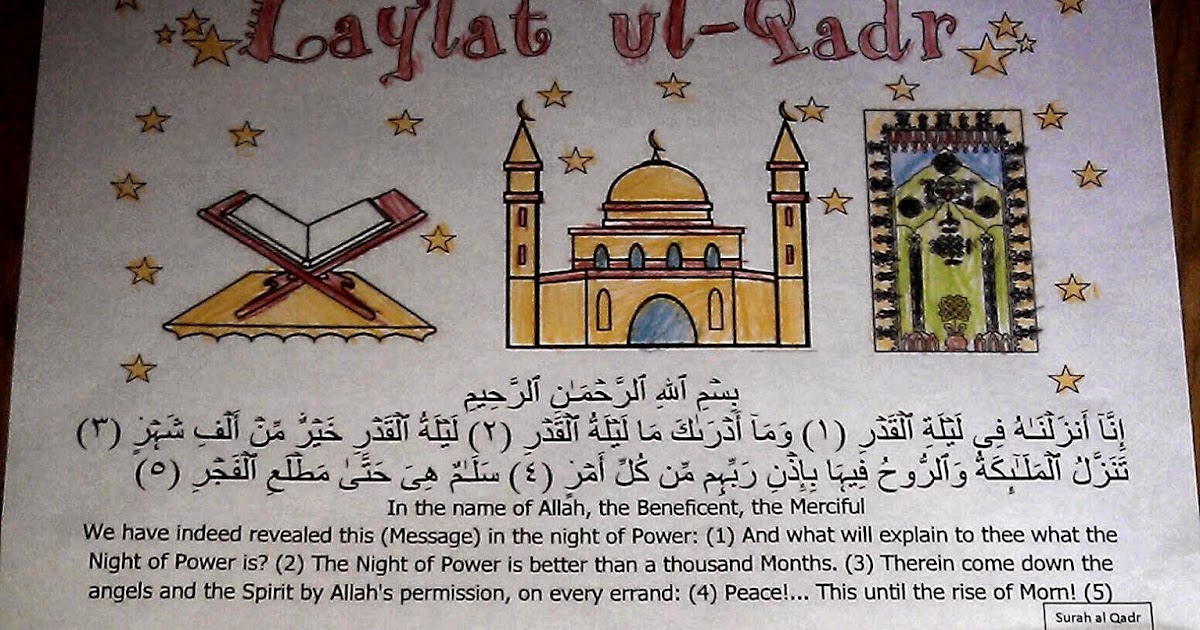 Laylat ul-Qadr
بِسْمِ ٱللَّهِ ٱلرَّحْمَـٰنِ ٱلرَّحِيمِ
إِنَّآ أَنزَلْنَـٰهُ فِى لَيْلَةِ ٱلْقَدْرِ (١) وَمَآ أَدْرَىٰكَ مَا لَيْلَةُ ٱلْقَدْرِ (٢) لَيْلَةُ ٱلْقَدْرِ خَيْرٌ مِّنْ أَلْفِ شَهْرٍ (٣)
تَنَزَّلُ ٱلْمَلَـٰٓئِكَةُ وَٱلرُّوحُ فِيهَا بِإِذْنِ رَبِّهِم مِّن كُلِّ أَمْرٍ (٤) سَلَـٰمٌ هِىَ حَتَّىٰ مَطْلَعِ ٱلْفَجْرِ (٥)
In the name of Allah, the Beneficent, the Merciful
We have indeed revealed this (Message) in the night of Power: (1) And what will explain to thee what the
Night of Power is? (2) The Night of Power is better than a thousand Months. (3) Therein come down the
angels and the Spirit by Allah's permission, on every errand: (4) Peace!... This until the rise of Morn! (5)
Surah al Qadr